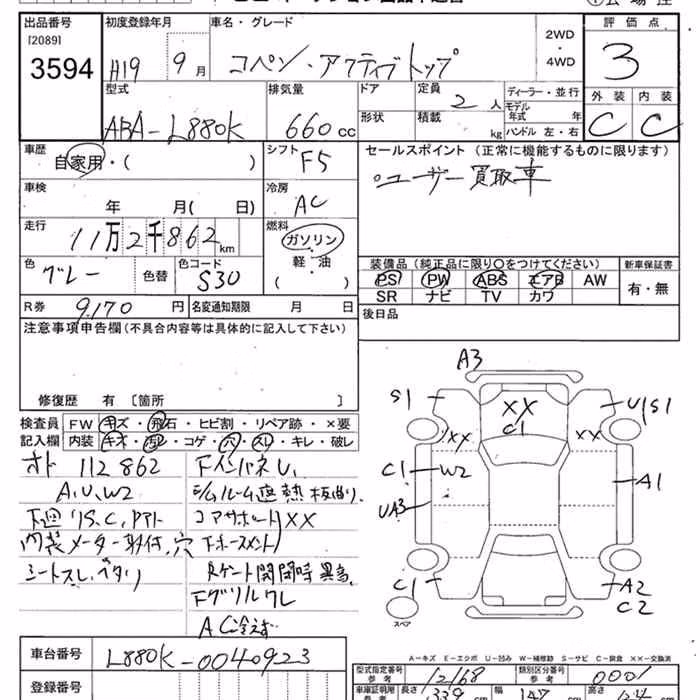 出品番号
[2089]
3594
初度登録年月
H19 9月
車名・グレード
コペン・アクティブトップ
2WD
・
4WD
評価点
3
外装 内装
C C
型式
ABA-L880K
排気量
660cc
ドア
形状
定員
2人
積載
kg
ディーラー・並行
モデル
年式 年
ハンドル 左・右
車歴
自家用・( )
シフト
F5
セールスポイント (正常に機能するものに限ります)
○ユーザー買取車
車検
年 月( 日)
冷房
AC
走行
11万2千862km
燃料
ガソリン・
軽・油
( )
色
グレー
色替
色コード
S30
装備品(純正品に限り○をつけてください)
PS PW ABS エアB AW
SR ナビ TV カワ
新車保証書
有・無
R券
9,170円
名変通知期限 月 日
後日品
注意事項申告欄(不具合内容等は具体的に記入して下さい)
修復歴 有 [箇所 ]
検査員
記入欄
FW キズ・飛石・ヒビ割・リペア跡・×要
内装 キズ・汚レ・コゲ・穴・スレ・キレ・破レ
オド 112862
A,U,W2
下廻リS,C,
内装メーター取付穴
シートスレ,ヘタリ
FインパネU,
コアサポートXX
Rゲート開閉時異音
Fグリルワレ
AC冷えず
A3
S1
XX
C1
U1S1
XX
XX
C1
W2
A1
UA3
C1
A2
C2
スペア
A-キズ E-エクボ U-凹み W-補修跡 S-サビ C-腐食 XX-交換済
車台番号
L880K-0040923
登録番号
型式指定番号
参考
12168
類別区分番号
参考
0001
車庫証明用
参考
長さ
339cm
幅
147
高さ
124